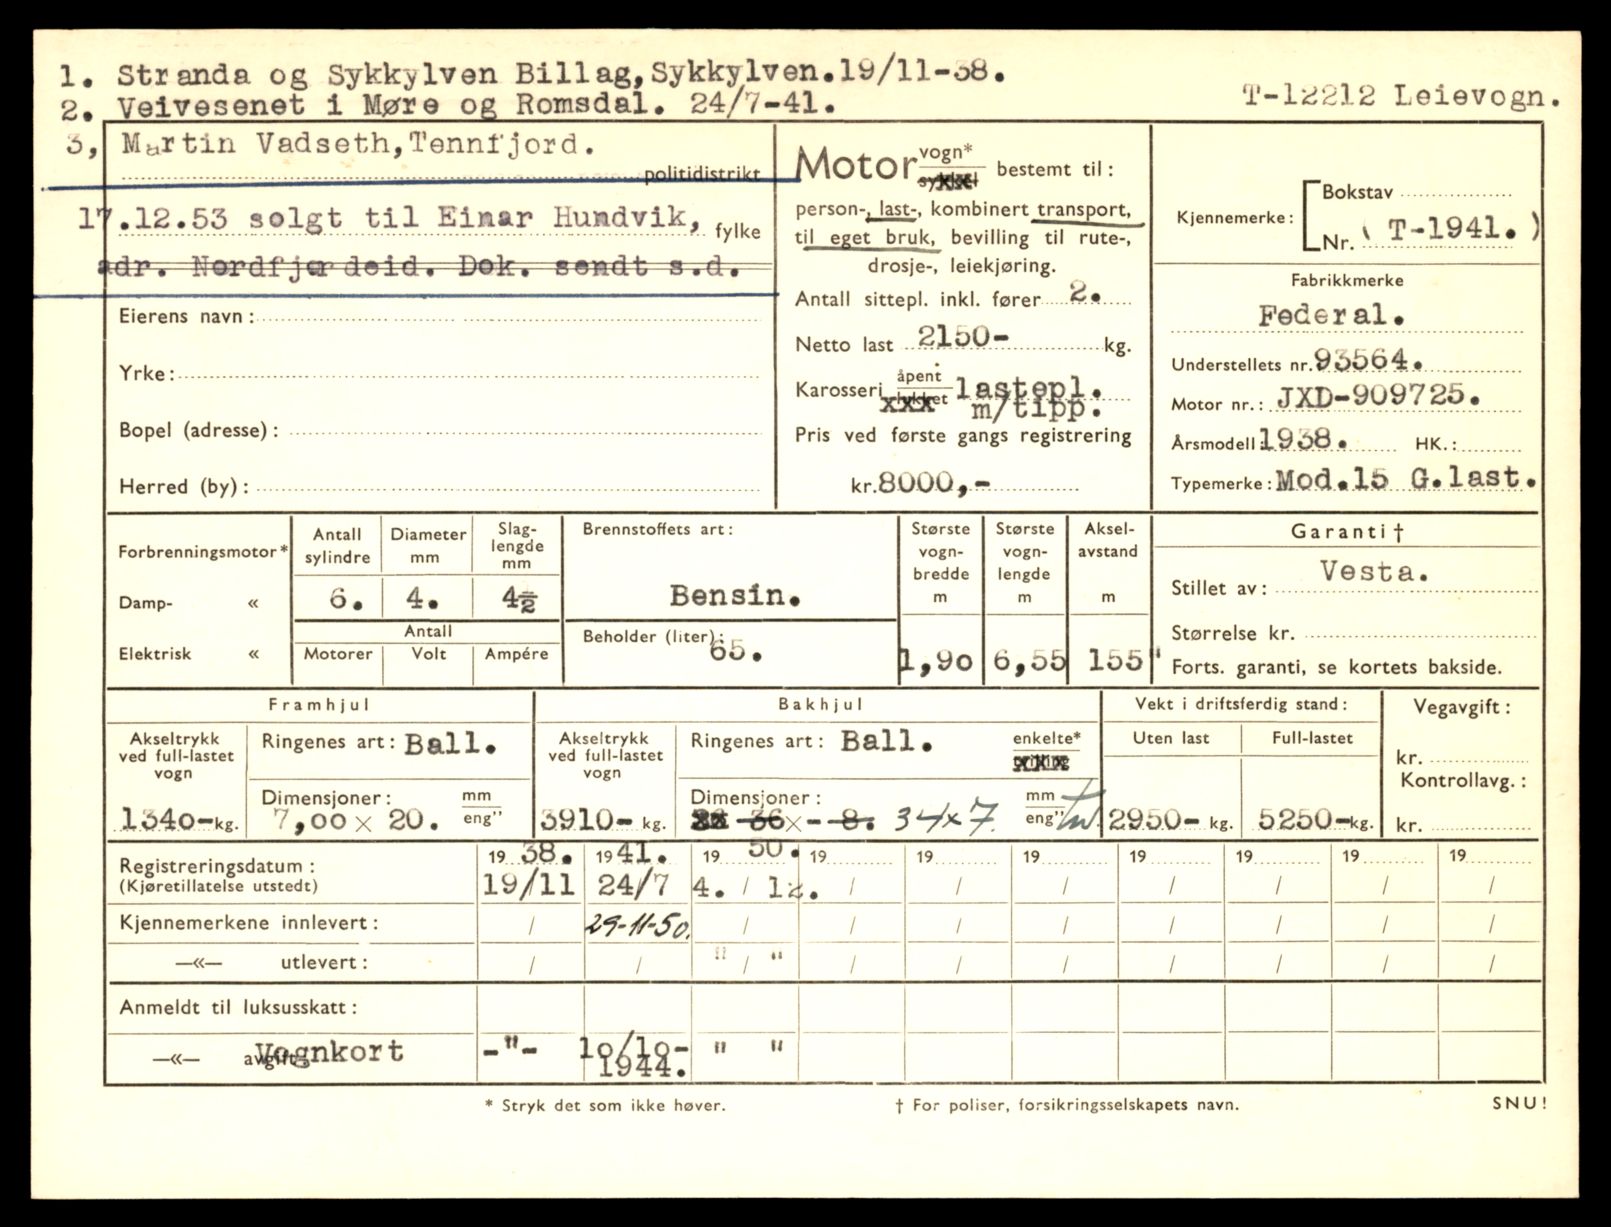 1. Stranda og Sykkylven Billag, Sykkylven. 19/11-38.
2. Veivesenet i Møre og Romsdal. 24/7-41.
T-12212 Leievogn.
3, Martin Vadseth, Tennfjord.
politidistrikt
17.12.53 solgt til Einar Hundvik,
fylke
adr. Nordfjordeid. Dok. sendt s.d.
Eierens navn:
Yrke:
Bopel (adresse):
Herred (by):
Motor vogn* bestemt til:
person-, last-, kombinert transport,
til eget bruk, bevilling til rute-,
drosje-, leiekjøring.
Antall sittepl. inkl. fører 2.
Netto last 2150- kg.
Karosseri åpent lukket lastepl.
m/tipp.
Pris ved første gangs registrering
kr. 8000,-
Kjennemerke: Bokstav
Nr. ( T-1941. )
Fabrikkmerke
Federal.
Understellets nr. 93564.
Motor nr.: JXD-909725.
Årsmodell: 1938. HK.:
Typemerke: Mod.15 G.last.
Forbrenningsmotor*
Damp- «
Elektrisk «
Antall sylindre 6.
Diameter mm 4.
Slag-lengde mm 4½
Antall
Motorer Volt Ampére
Brennstoffets art:
Bensin.
Beholder (liter): 65.
Største vogn-bredde m 1,90
Største vogn-lengde m 6,55
Aksel-avstand m 155"
Garanti †
Stillet av: Vesta.
Størrelse kr.
Forts. garanti, se kortets bakside.
Framhjul
Akseltrykk ved full-lastet vogn
1340- kg.
Ringenes art: Ball.
Dimensjoner: mm eng"
7,00 × 20.
Bakhjul
Akseltrykk ved full-lastet vogn
3910- kg.
Ringenes art: Ball. enkelte*
Dimensjoner: mm eng"
36 × - 8. 34 x 7.
Vekt i driftsferdig stand:
Uten last Full-lastet
2950- kg. 5250- kg.
Vegavgift:
kr.
Kontrollavg.:
kr.
Registreringsdatum: 19 38. 19 41. 19 50. 19 19 19 19 19 19 19
(Kjøretillatelse utstedt) 19/11 24/7 4. / 12. / / / / / / /
Kjennemerkene innlevert: / 29-11-50. / / / / / / / /
—«— utlevert: / / " / " / / / / / / /
Anmeldt til luksusskatt:
—«— avgift: Vognkort -"- 10/10-1944. " "
* Stryk det som ikke høver.
† For poliser, forsikringsselskapets navn.
SNU!